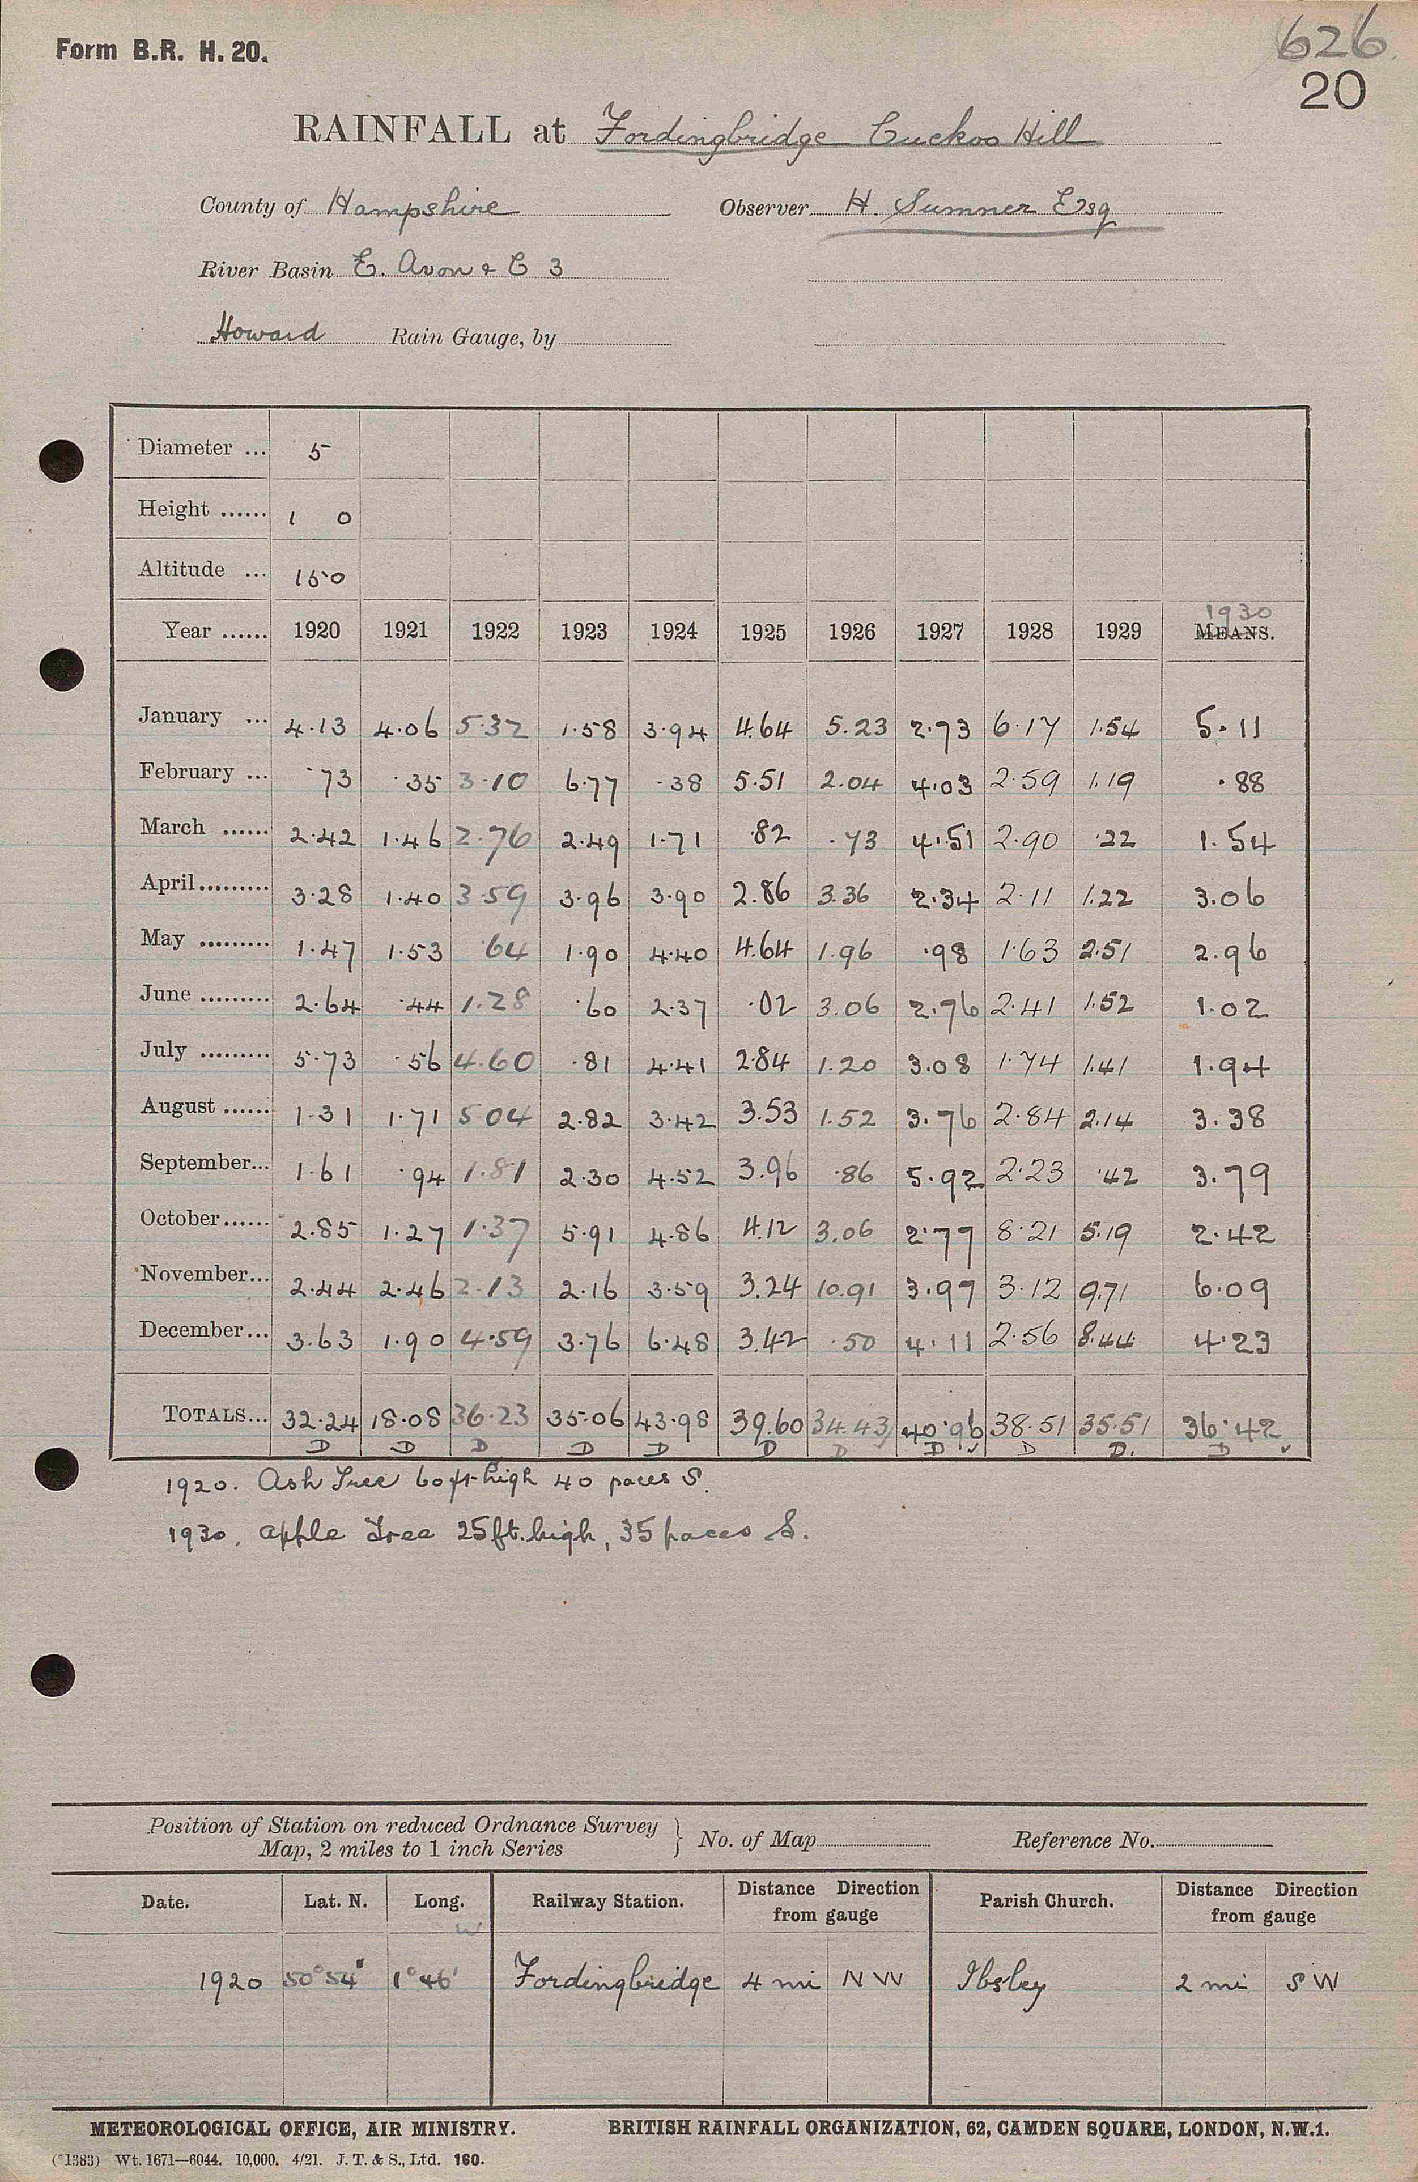 Form B.R. H. 20.
626
20
RAINFALL at Fordingbridge Cuckoo Hill
County of Hampshire Observer H. Sumner Esq
River Basin E. Avon & C 3
Howard Rain Gauge, by
Diameter ... 5
Height ...... 1 0
Altitude ... 150
1930
Year ...... 1920 1921 1922 1923 1924 1925 1926 1927 1928 1929 MEANS.
January ... 4.13 4.06 5.32 1.58 3.94 4.64 5.23 2.73 6.17 1.54 5.11
February ... .73 .35 3.10 6.77 .38 5.51 2.04 4.03 2.59 1.19 .88
March ...... 2.42 1.46 2.76 2.49 1.71 .82 .73 4.51 2.90 .22 1.54
April......... 3.28 1.40 3.59 3.96 3.90 2.86 3.36 2.34 2.11 1.22 3.06
May ......... 1.47 1.53 64 1.90 4.40 4.64 1.96 .98 1.63 2.51 2.96
June ......... 2.64 .44 1.28 .60 2.37 .02 3.06 2.76 2.41 1.52 1.02
July ......... 5.73 .56 4.60 .81 4.41 2.84 1.20 3.08 1.74 1.41 1.94
August ...... 1.31 1.71 5 04 2.82 3.42 3.53 1.52 3.76 2.84 2.14 3.38
September... 1.61 .94 1.81 2.30 4.52 3.96 .86 5.92 2.23 .42 3.79
October...... 2.85 1.27 1.37 5.91 4.86 4.12 3.06 2.77 8.21 5.19 2.42
November... 2.44 2.46 2.13 2.16 3.59 3.24 10.91 3.97 3.12 9.71 6.09
December... 3.63 1.90 4.59 3.76 6.48 3.42 .50 4.11 2.56 8.44 4.23
TOTALS... 32.24 18.08 36.23 35.06 43.98 39.60 34.43 40.96 38.51 35.51 36.42
D D D D D D D D D D. D
1920. Ash Tree 60ft high 40 paces S.
1930. apple Tree 25ft. high, 35 paces S.
Position of Station on reduced Ordnance Survey
Map, 2 miles to 1 inch Series } No. of Map Reference No.
Date. Lat. N. Long. Railway Station. Distance Direction from gauge Parish Church. Distance Direction from gauge
W
1920 50°54' 1°46' Fordingbridge 4 mi N W Ibsley 2 mi S W
METEOROLOGICAL OFFICE, AIR MINISTRY. BRITISH RAINFALL ORGANIZATION, 62, CAMDEN SQUARE, LONDON, N.W.1.
(*1383) Wt. 1671—6044. 10,000. 4/21. J. T. & S., Ltd. 160.